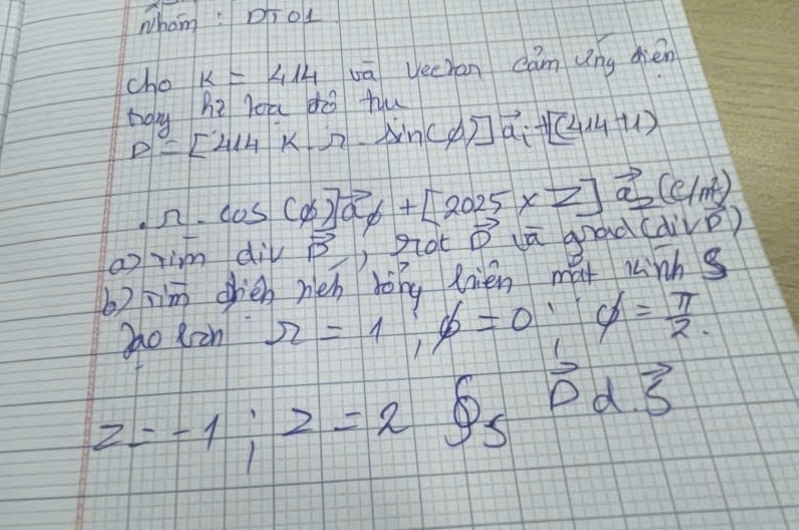 Nhóm : DT01
Cho K = 414 và vectơ cảm ứng điện
trong hệ toạ độ trụ
D = [414 K . r . sin(φ)] a⃗r + [(414+1)
. r . cos (φ)] a⃗φ + [2025 x Z] a⃗z (C/m²)
a) Tìm div D⃗ , rot D⃗ và grad(div D⃗)
b) Tìm điện tích tổng trên mặt kính S
tạo bởi r = 1 ; φ = 0 ; φ = π/2.
z = -1 ; z = 2 ∮S D⃗ d.S⃗